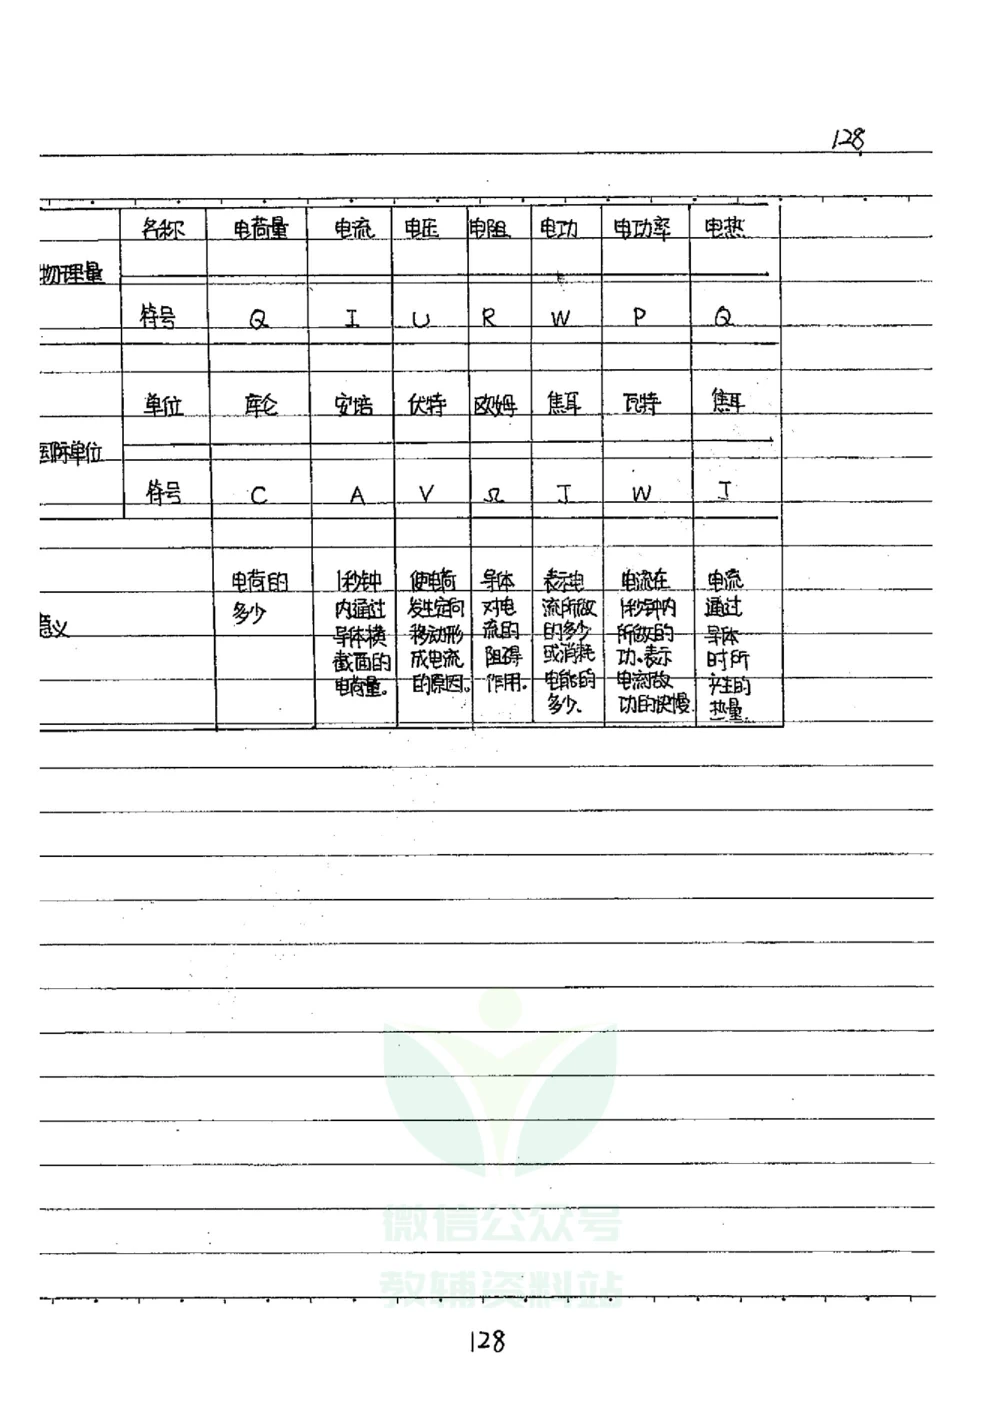 128
名称 电荷量 电流 电压 电阻 电功 电功率 电热
物理量
符号 Q I U R W P Q
单位 库仑 安培 伏特 欧姆 焦耳 瓦特 焦耳
国际单位
符号 C A V Ω J W J
意义
电荷的
多少
1秒钟
内通过
导体横
截面的
电荷量。
使电荷
发生定向
移动形
成电流
的原因。
导体
对电
流的
阻碍
作用.
表示电
流所做
的多少
或消耗
电能的
多少.
电流在
1秒钟内
所做的
功.表示
电流做
功的快慢.
电流
通过
导体
时所
产生的
热量.
微信公众号
教辅资料站
128